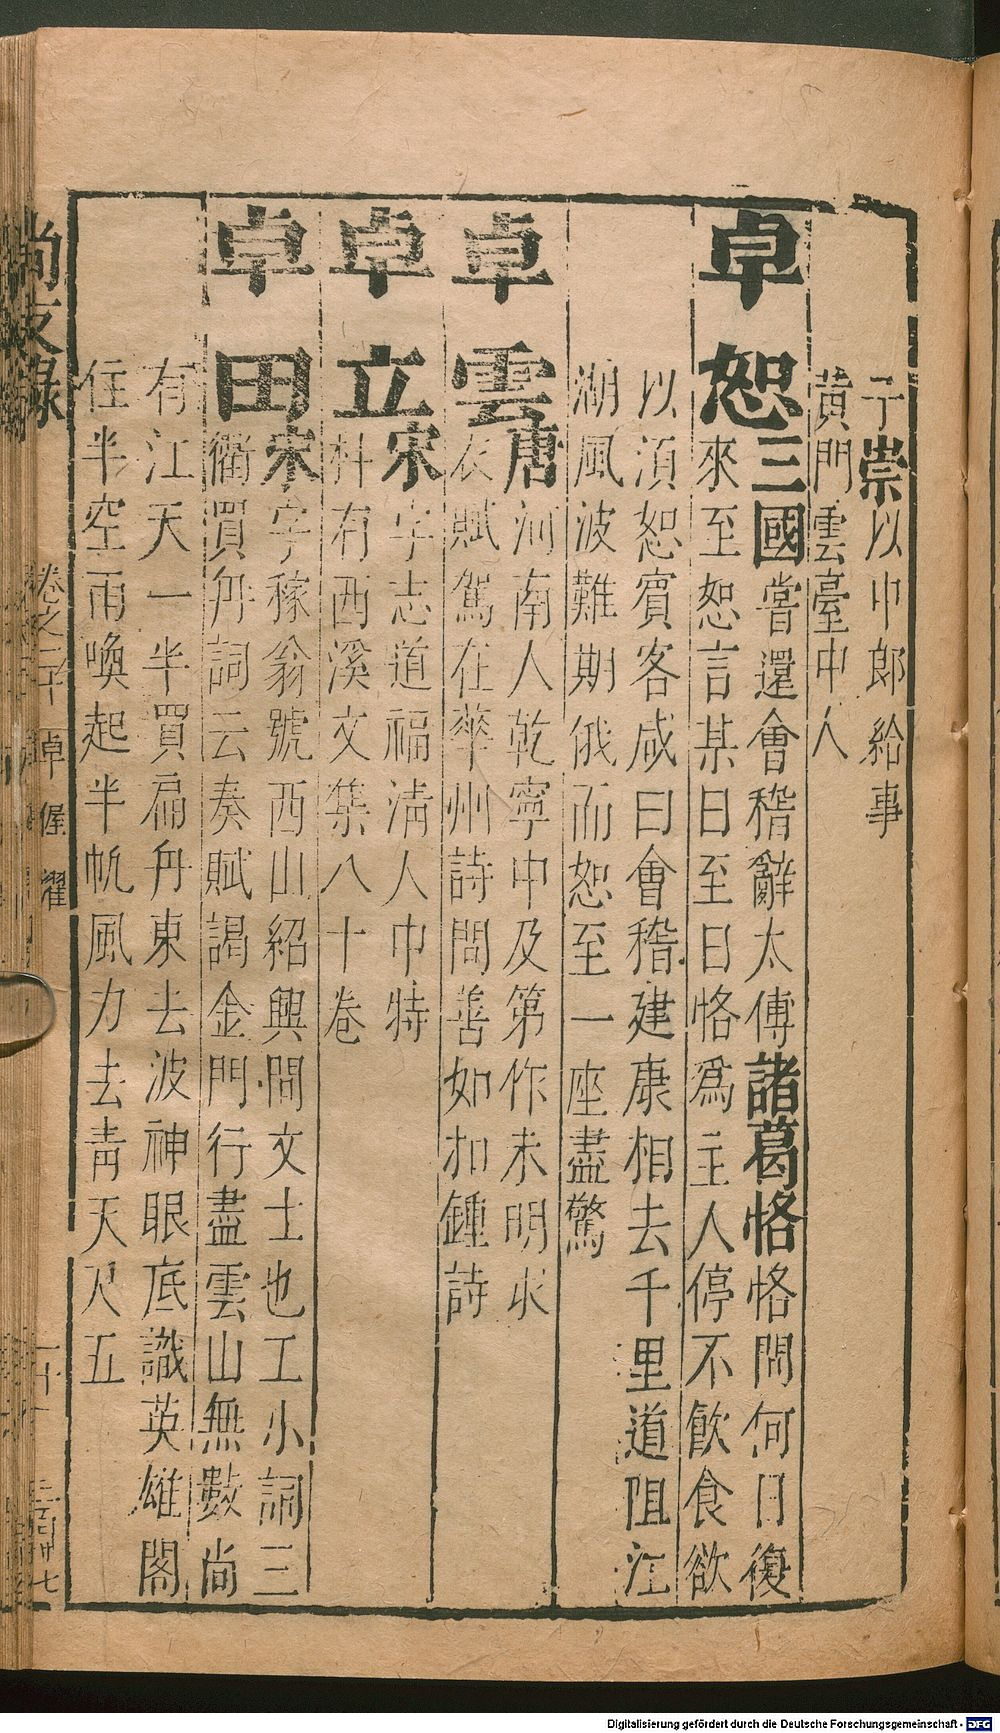 子崇以中郎給事
黃門雲臺中人
卓恕三國嘗還會稽辭太傅諸葛恪恪問何日復
來至恕言某日至日恪爲主人停不飲食欲
以須恕賓客咸曰會稽建康相去千里道阻江
湖風波難期俄而恕至一座盡驚
卓雲唐河南人乾寧中及第作未明求
衣賦駕在華州詩問善如扣鍾詩
卓立宋字志道福淸人巾特
科有西溪文集八十卷
卓田宋字稼翁號西山紹興間文士也工小詞三
衢買舟詞云奏賦謁金門行盡雲山無數尙
有江天一半買扁舟東去波神眼底識英雄閣
住半空雨喚起半帆風力去靑天尺五
尙友錄
卷之二十 卓 偓 濯
Digitalisierung gefördert durch die Deutsche Forschungsgemeinschaft - DFG